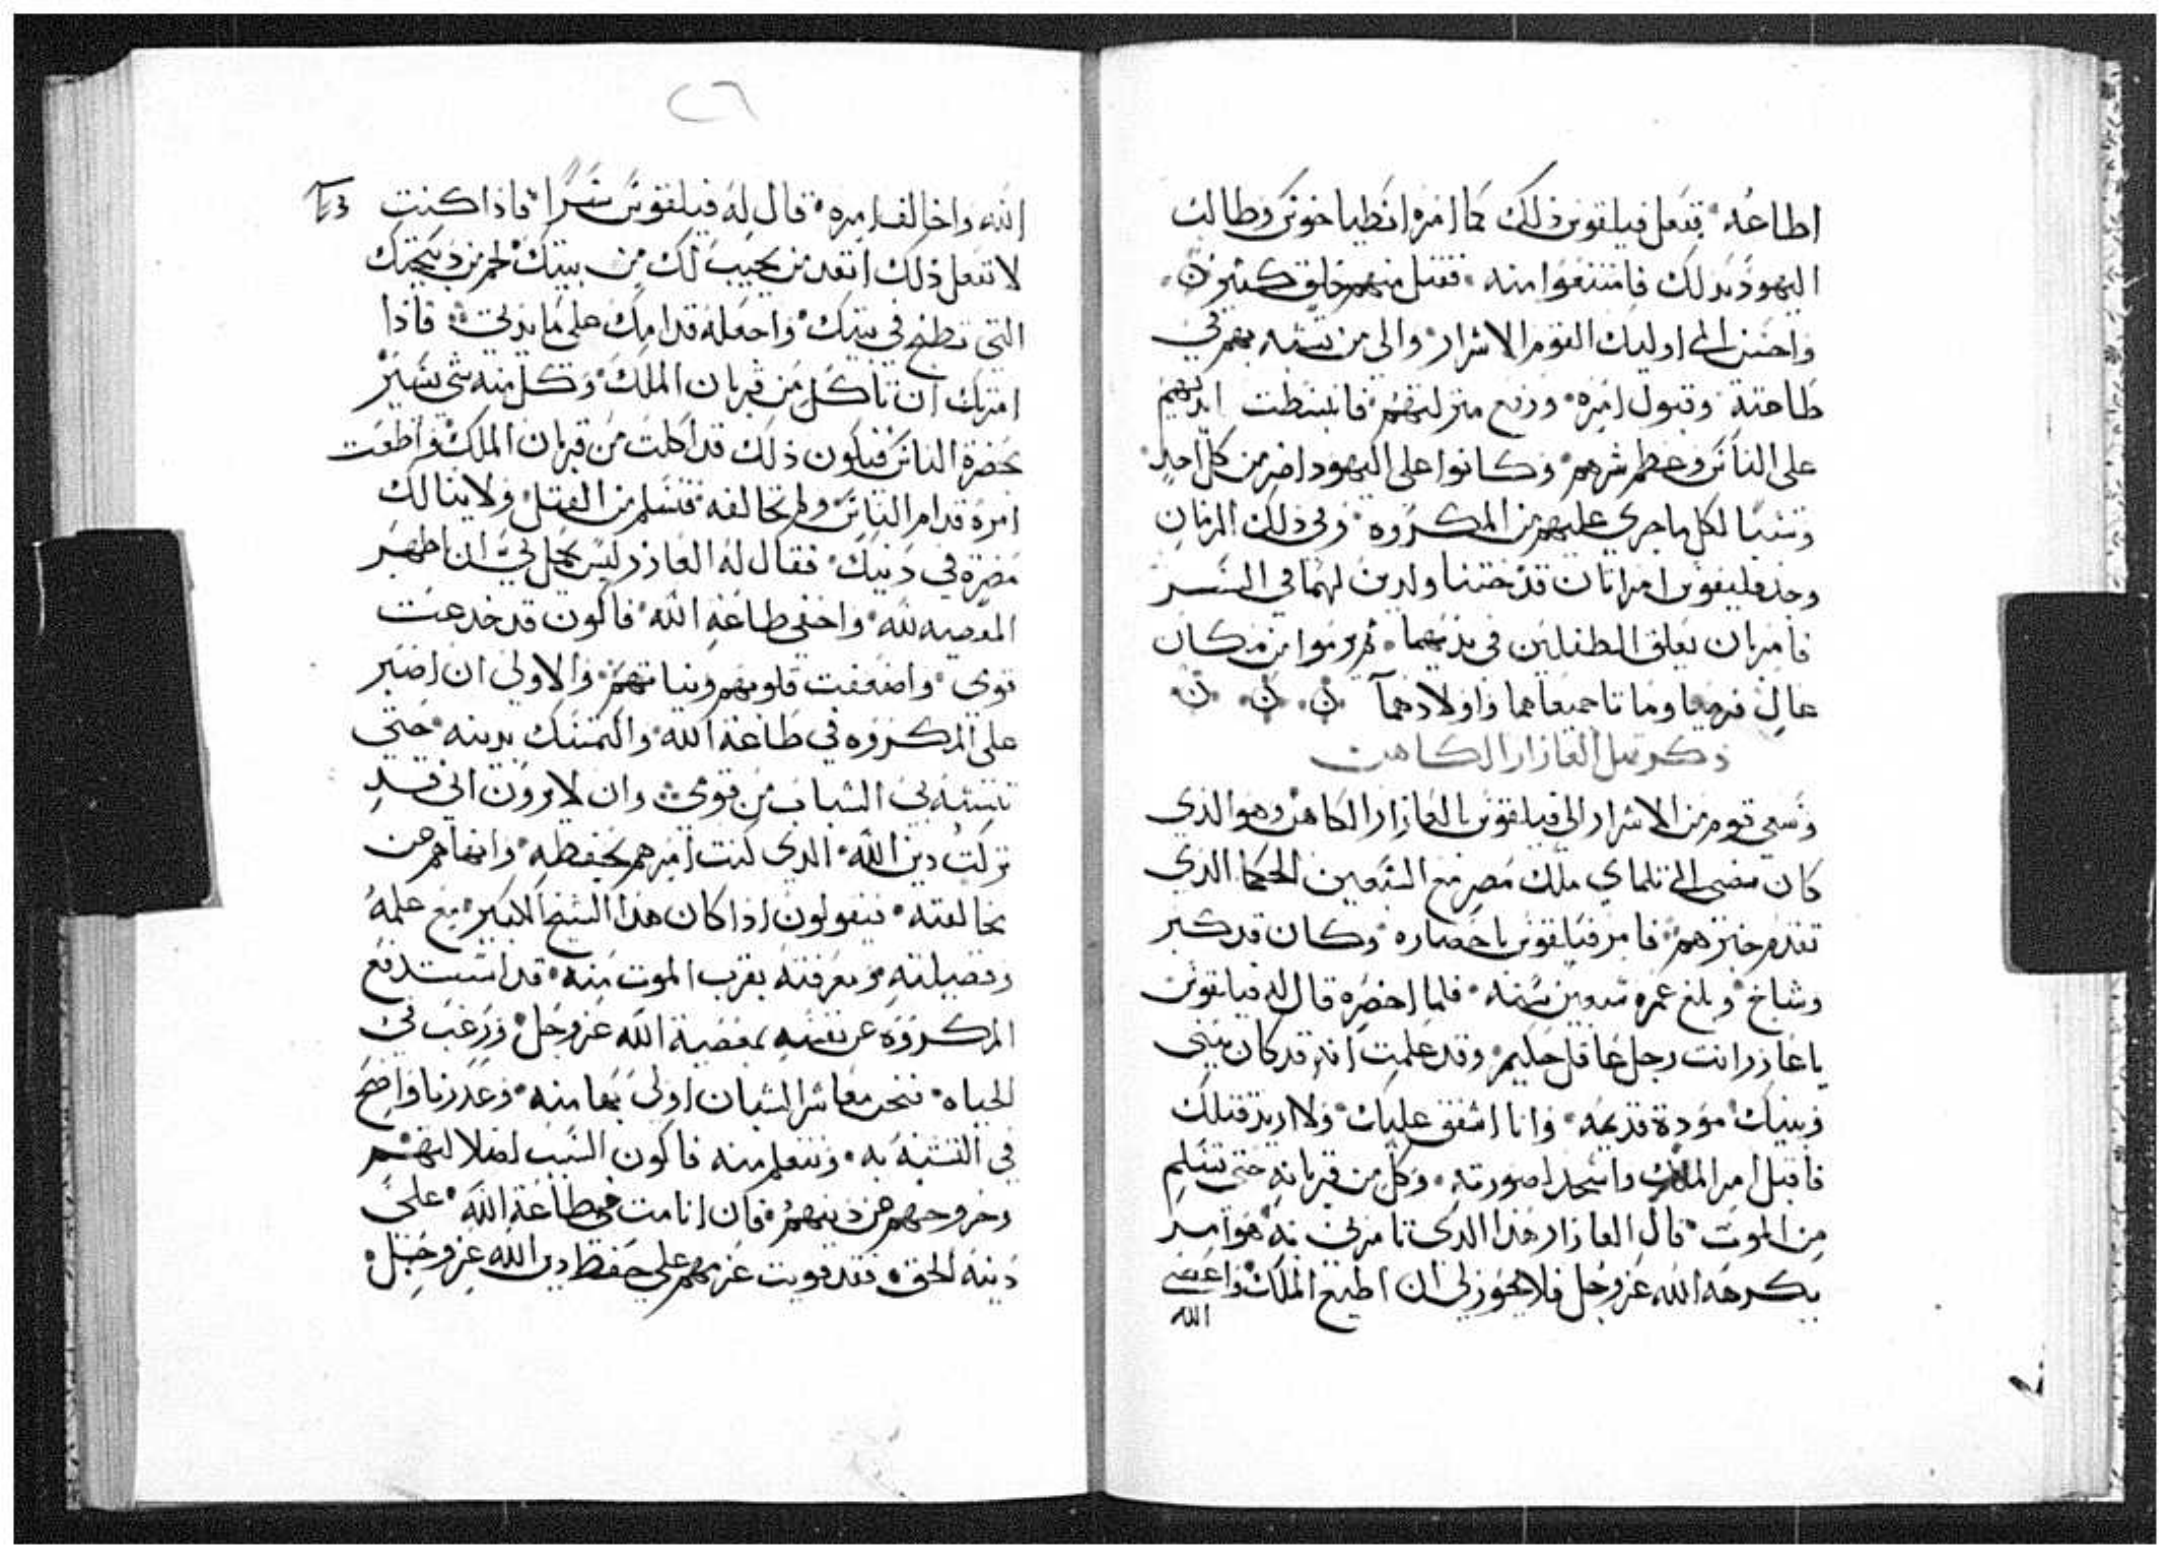 اطاعه ففعل فيلقوس ذلك كما امره انطياخوس وطالب
اليهود بذلك فامتنعوا منه فقتل منهم خلق كثير
واحسن الى اوليك القوم الاشرار والى من تشبه بهم في
طاعته وقبول امره ورفع منزلتهم فانبسطت ايديهم
على الناس وعظم شرهم وكانوا على اليهود اضر من كل احد
وسببا لكل ما جرى عليهم من المكروه وفي ذلك الزمان
وجد فليقوس امراتان قد ختنا ولدين لهما في السر
فامر ان يعلق الطفلين في يديهما ثم رموا من مكان
عال فرميا وماتا جميعا هما واولادهما
ذكر قتل العازار الكاهن
وسعى قوم من الاشرار الى فيلقوس بالعازار الكاهن وهو الذي
كان مضى الى تلماي ملك مصر مع السبعين الحكما الذي
تقدم خبرهم فامر فيلقوس باحضاره وكان قد كبر
وشاخ وبلغ عمره تسعين سنه فلما احضره قال له فيلقوس
ياعازر انت رجل عاقل حليم وقد علمت انه قد كان بيني
وبينك مودة قديمه وانا اشفق عليك ولا اريد قتلك
فاقبل امر الملك واسجد لصورته وكل من قربانه حتى تسلم
من الموت قال العازار هذا الدي تامرني به هو امر
يكرهه الله عز وجل فلا يجوز لي ان اطيع الملك واعصي
الله
٢٦
الله واخالف امره قال له فيلقوس سرا فاذا كنت
لا تفعل ذلك انفد من يجيب لك من بيتك لحم من ذبيحتك
التي تطبخ في بيتك واجعله قدامك على مايدتي فاذا
امرتك ان تاكل من قربان الملك وكل منه شي يسير
بحضرة الناس فيكون ذلك قد اكلت من قربان الملك واطعت
امره قدام الناس ولم تخالفه فتسلم من القتل ولا ينالك
مضرة في دينك فقال له العازر ليس يجمل بي ان اظهر
المعصيه لله واخفي طاعة الله فاكون قد خدعت
قومي واضعفت قلوبهم ونياتهم والاولى ان اصبر
على المكروه في طاعة الله والتمسك بدينه حتى
تتشبه بي الشباب من قومي وان لا يرون اني قد
تركت دين الله الدي كنت امرهم بحفظه وانهاهم عن
مخالفته فيقولون اذا كان هذا الشيخ الكبير مع علمه
وفضيلته ومعرفته بقرب الموت منه قد استدفع
المكروه عن نفسه بمعصية الله عز وجل ورغب في
الحياه فنحن معاشر الشبان اولى بها منه وعدرنا واضح
في التشبه به ونتعلم منه فاكون السبب لضلالتهم
وخروجهم من دينهم فان انا مت في طاعة الله على
دينه الحق فقد قويت عزمهم على حفظ دين الله عز وجل